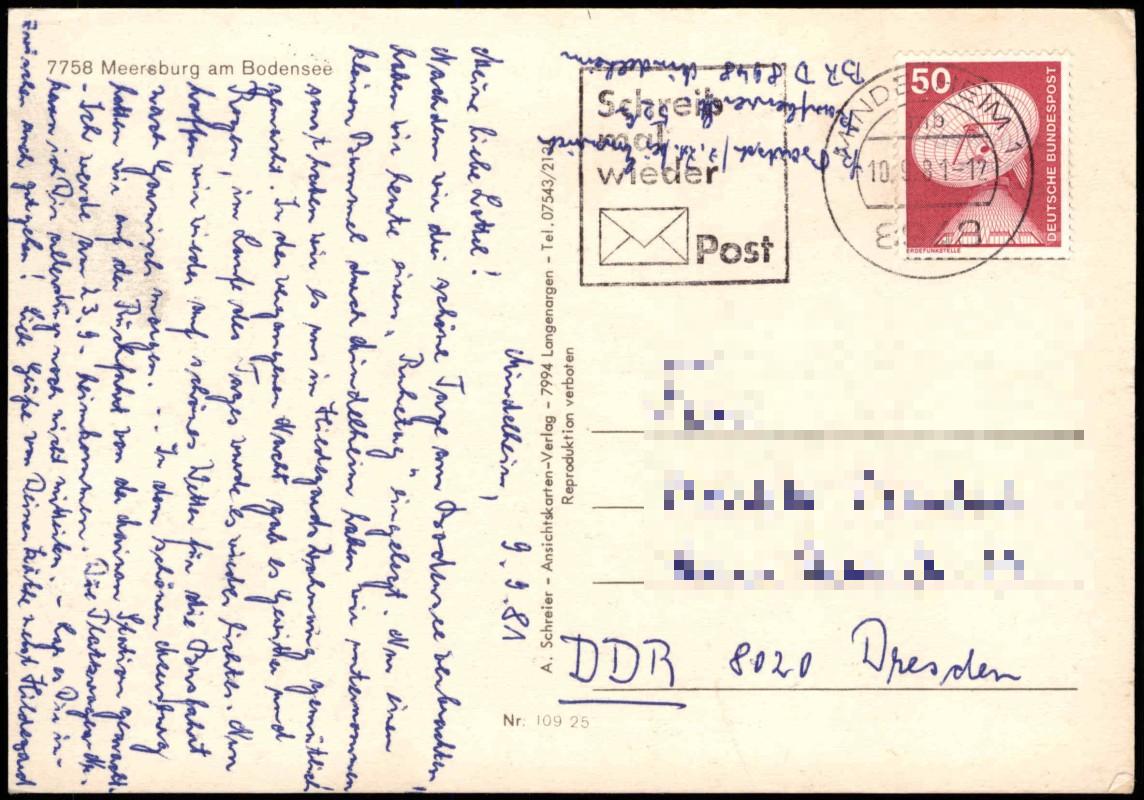 7758 Meersburg am Bodensee
Mindelheim, 9.9.81
Meine liebe Lottel!
Nachdem wir die schöne Tage am Bodensee verbrachten,
haben wir heute einen „Ruhetag" eingelegt. Nur einen
kleinen Bummel durch Mindelheim haben wir unternommen
sonst haben wir es uns in Hildegards Wohnung gemütlich
gemacht. In der vergangenen Nacht gab es Gewitter und
Regen, im Laufe des Tages wurde es wieder lichter. Nun
hoffen wir wieder auf schönes Wetter für die Busfahrt
nach Garmisch morgen. .. In dem schönen Meersburg
hatten wir auf der Rückfahrt von der Station gemacht.
- Ich werde am 23.9. heimkommen. Die Platzkarten Nr.
kann ich Dir allerdings noch nicht mitteilen. - Lass es Dir in-
zwischen auch gutgehen! Liebe Grüße von Deiner Käthe nebst Hildegard
A. Schreier - Ansichtskarten-Verlag - 7994 Langenargen - Tel. 07543/212
Reproduktion verboten
Nr: 109 25
BRD 8948 Mindelheim
Schreib
mal
wieder
Post
MINDELHEIM 1
10.9.81-17
8948
50
DEUTSCHE BUNDESPOST
ERDEFUNKSTELLE
DDR 8020 Dresden